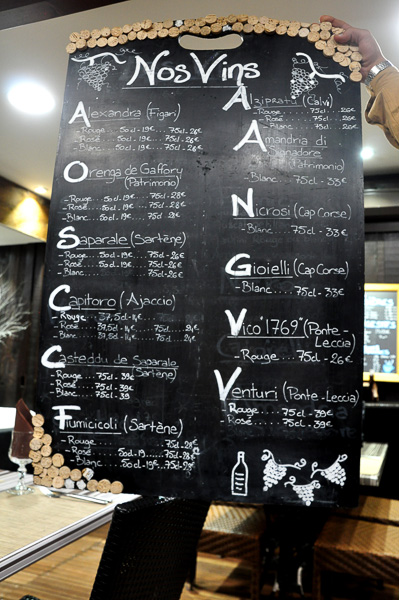 Nos Vins
Alexandra (Figari)
- Rouge.... 50cl - 19€..... 75cl - 26€
- Rosé.... 50cl - 19€..... 75cl - 26€
- Blanc.... 50cl - 19€..... 75cl - 26€
Orenga de Gaffory
(Patrimonio)
- Rouge.... 50cl - 19€.... 75cl - 28€
- Rosé.... 50cl - 19€.... 75cl - 28€
- Blanc.... 50cl - 19€.... 75cl - 28€
Saparale (Sartène)
- Rouge.... 50cl - 19€.... 75cl - 26€
- Rosé.... 50cl - 19€.... 75cl - 26€
- Blanc.... 50cl - 19€.... 75cl - 26€
Capitoro (Ajaccio)
- Rouge... 37,5cl - 14€...
- Rosé.... 37,5cl - 14€..... 75cl - 24€
- Blanc... 37,5cl - 14€..... 75cl - 24€
Casteddu de Saparale
(Sartène)
- Rouge........ 75cl - 39€
- Rosé........ 75cl - 39€
- Blanc........ 75cl - 39
Fiumicicoli (Sartène)
- Rouge............... 75cl - 28€
- Rosé..... 50cl - 19..... 75cl - 28€
- Blanc.... 50cl - 19€.... 75cl - 28€
Alzipratu (Calvi)
- Rouge........ 75cl - 26€
- Rosé........ 75cl - 26€
- Blanc........ 75cl - 26€
Amandria di
Signadore
(Patrimonio)
- Rouge...... 75cl - 33€
Nicrosi (Cap Corse)
- Blanc........ 75cl - 33€
Gioielli (Cap Corse)
- Blanc........ 75cl - 33€
Vico "1769" (Ponte-
Leccia)
- Rouge.... 75cl - 26€
Venturi (Ponte-Leccia)
- Rouge........ 75cl - 39€
- Rosé........ 75cl - 39€